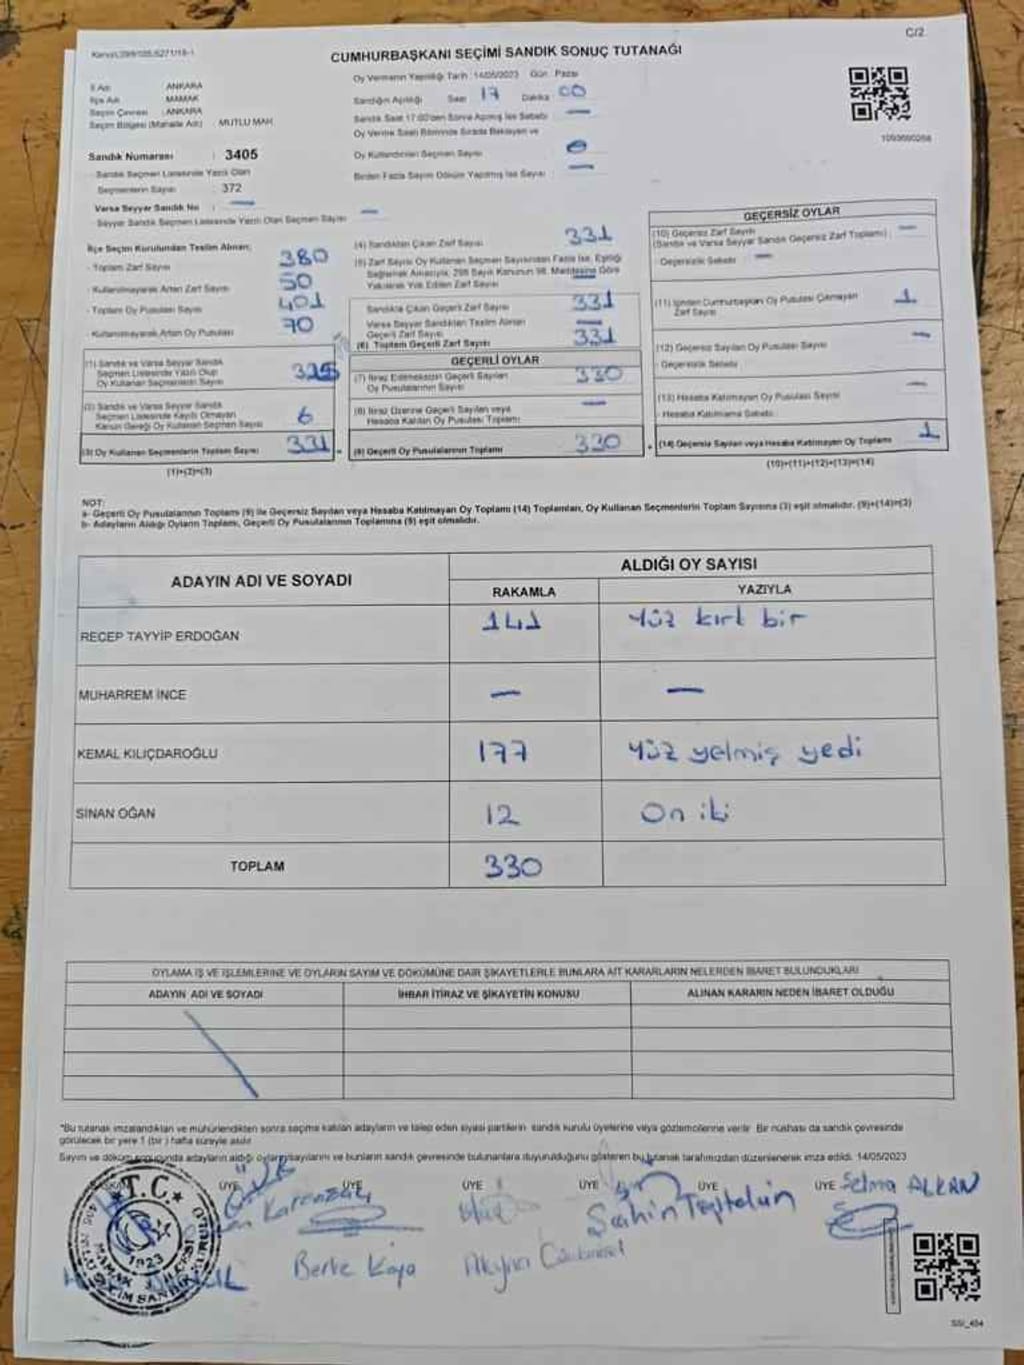 C/2
CUMHURBAŞKANI SEÇİMİ SANDIK SONUÇ TUTANAĞI
Oy Vermenin Yapıldığı Tarih : 14/05/2023 Gün Pazar
İl Adı : ANKARA
İlçe Adı : MAMAK
Seçim Çevresi : ANKARA
Seçim Bölgesi (Mahalle Adı) : MUTLU MAH.
Sandığın Açıldığı Saat 17 Dakika 00
Sandık Saat 17:00'den Sonra Açılmış İse Sebebi —
Oy Verme Saati Bitiminde Sırada Bekleyen ve
Oy Kullandırılan Seçmen Sayısı 0
Birden Fazla Sayım Döküm Yapılmış İse Sayısı —
Sandık Numarası : 3405
Sandık Seçmen Listesinde Yazılı Olan
Seçmenlerin Sayısı : 372
Varsa Seyyar Sandık No : —
Seyyar Sandık Seçmen Listesinde Yazılı Olan Seçmen Sayısı —
İlçe Seçim Kurulundan Teslim Alınan;
- Toplam Zarf Sayısı 380
- Kullanılmayarak Artan Zarf Sayısı 50
- Toplam Oy Pusulası Sayısı 401
- Kullanılmayarak Artan Oy Pusulası 70
(1) Sandık ve Varsa Seyyar Sandık
Seçmen Listesinde Yazılı Olup
Oy Kullanan Seçmenlerin Sayısı 325
(2) Sandık ve Varsa Seyyar Sandık
Seçmen Listesinde Kayıtlı Olmayan
Kanun Gereği Oy Kullanan Seçmen Sayısı 6
(3) Oy Kullanan Seçmenlerin Toplam Sayısı 331
(1)+(2)=(3)
(4) Sandıktan Çıkan Zarf Sayısı 331
(5) Zarf Sayısı Oy Kullanan Seçmen Sayısından Fazla İse, Eşitliği
Sağlamak Amacıyla, 298 Sayılı Kanunun 98. Maddesine Göre
Yakılarak Yok Edilen Zarf Sayısı —
Sandıkta Çıkan Geçerli Zarf Sayısı 331
Varsa Seyyar Sandıktan Teslim Alınan
Geçerli Zarf Sayısı —
(6) Toplam Geçerli Zarf Sayısı 331
GEÇERLİ OYLAR
(7) İtiraz Edilmeksizin Geçerli Sayılan
Oy Pusulalarının Sayısı 330
(8) İtiraz Üzerine Geçerli Sayılan veya
Hesaba Katılan Oy Pusulası Toplamı —
(9) Geçerli Oy Pusulalarının Toplamı 330
GEÇERSİZ OYLAR
(10) Geçersiz Zarf Sayısı
(Sandık ve Varsa Seyyar Sandık Geçersiz Zarf Toplamı) : —
- Geçersizlik Sebebi : —
(11) İçinden Cumhurbaşkanı Oy Pusulası Çıkmayan
Zarf Sayısı 1
(12) Geçersiz Sayılan Oy Pusulası Sayısı —
- Geçersizlik Sebebi :
(13) Hesaba Katılmayan Oy Pusulası Sayısı —
- Hesaba Katılmama Sebebi :
(14) Geçersiz Sayılan veya Hesaba Katılmayan Oy Toplamı 1
(10)+(11)+(12)+(13)=(14)
NOT:
a- Geçerli Oy Pusulalarının Toplamı (9) ile Geçersiz Sayılan veya Hesaba Katılmayan Oy Toplamı (14) Toplamları, Oy Kullanan Seçmenlerin Toplam Sayısına (3) eşit olmalıdır. (9)+(14)=(3)
b- Adayların Aldığı Oyların Toplamı, Geçerli Oy Pusulalarının Toplamına (9) eşit olmalıdır.
ADAYIN ADI VE SOYADI
ALDIĞI OY SAYISI
RAKAMLA YAZIYLA
RECEP TAYYİP ERDOĞAN 141 Yüz kırk bir
MUHARREM İNCE — —
KEMAL KILIÇDAROĞLU 177 Yüz yetmiş yedi
SİNAN OĞAN 12 On iki
TOPLAM 330
OYLAMA İŞ VE İŞLEMLERİNE VE OYLARIN SAYIM VE DÖKÜMÜNE DAİR ŞİKAYETLERLE BUNLARA AİT KARARLARIN NELERDEN İBARET BULUNDUKLARI
ADAYIN ADI VE SOYADI İHBAR İTİRAZ VE ŞİKAYETİN KONUSU ALINAN KARARIN NEDEN İBARET OLDUĞU
*Bu tutanak imzalandıktan ve mühürlendikten sonra seçime katılan adayların ve talep eden siyasi partilerin sandık kurulu üyelerine veya gözlemcilerine verilir. Bir nüshası da sandık çevresinde
görülecek bir yere 1 (bir) hafta süreyle asılır.
Sayım ve döküm sonucunda adayların aldığı oyların sayılarını ve bunların sandık çevresinde bulunanlara duyurulduğunu gösteren bu tutanak tarafımızdan düzenlenerek imza edildi. 14/05/2023
ÜYE ÜYE ÜYE ÜYE ÜYE ÜYE Selma ALKAN
Şahin
Berke Kaya
T.C.
1923
SSI_404